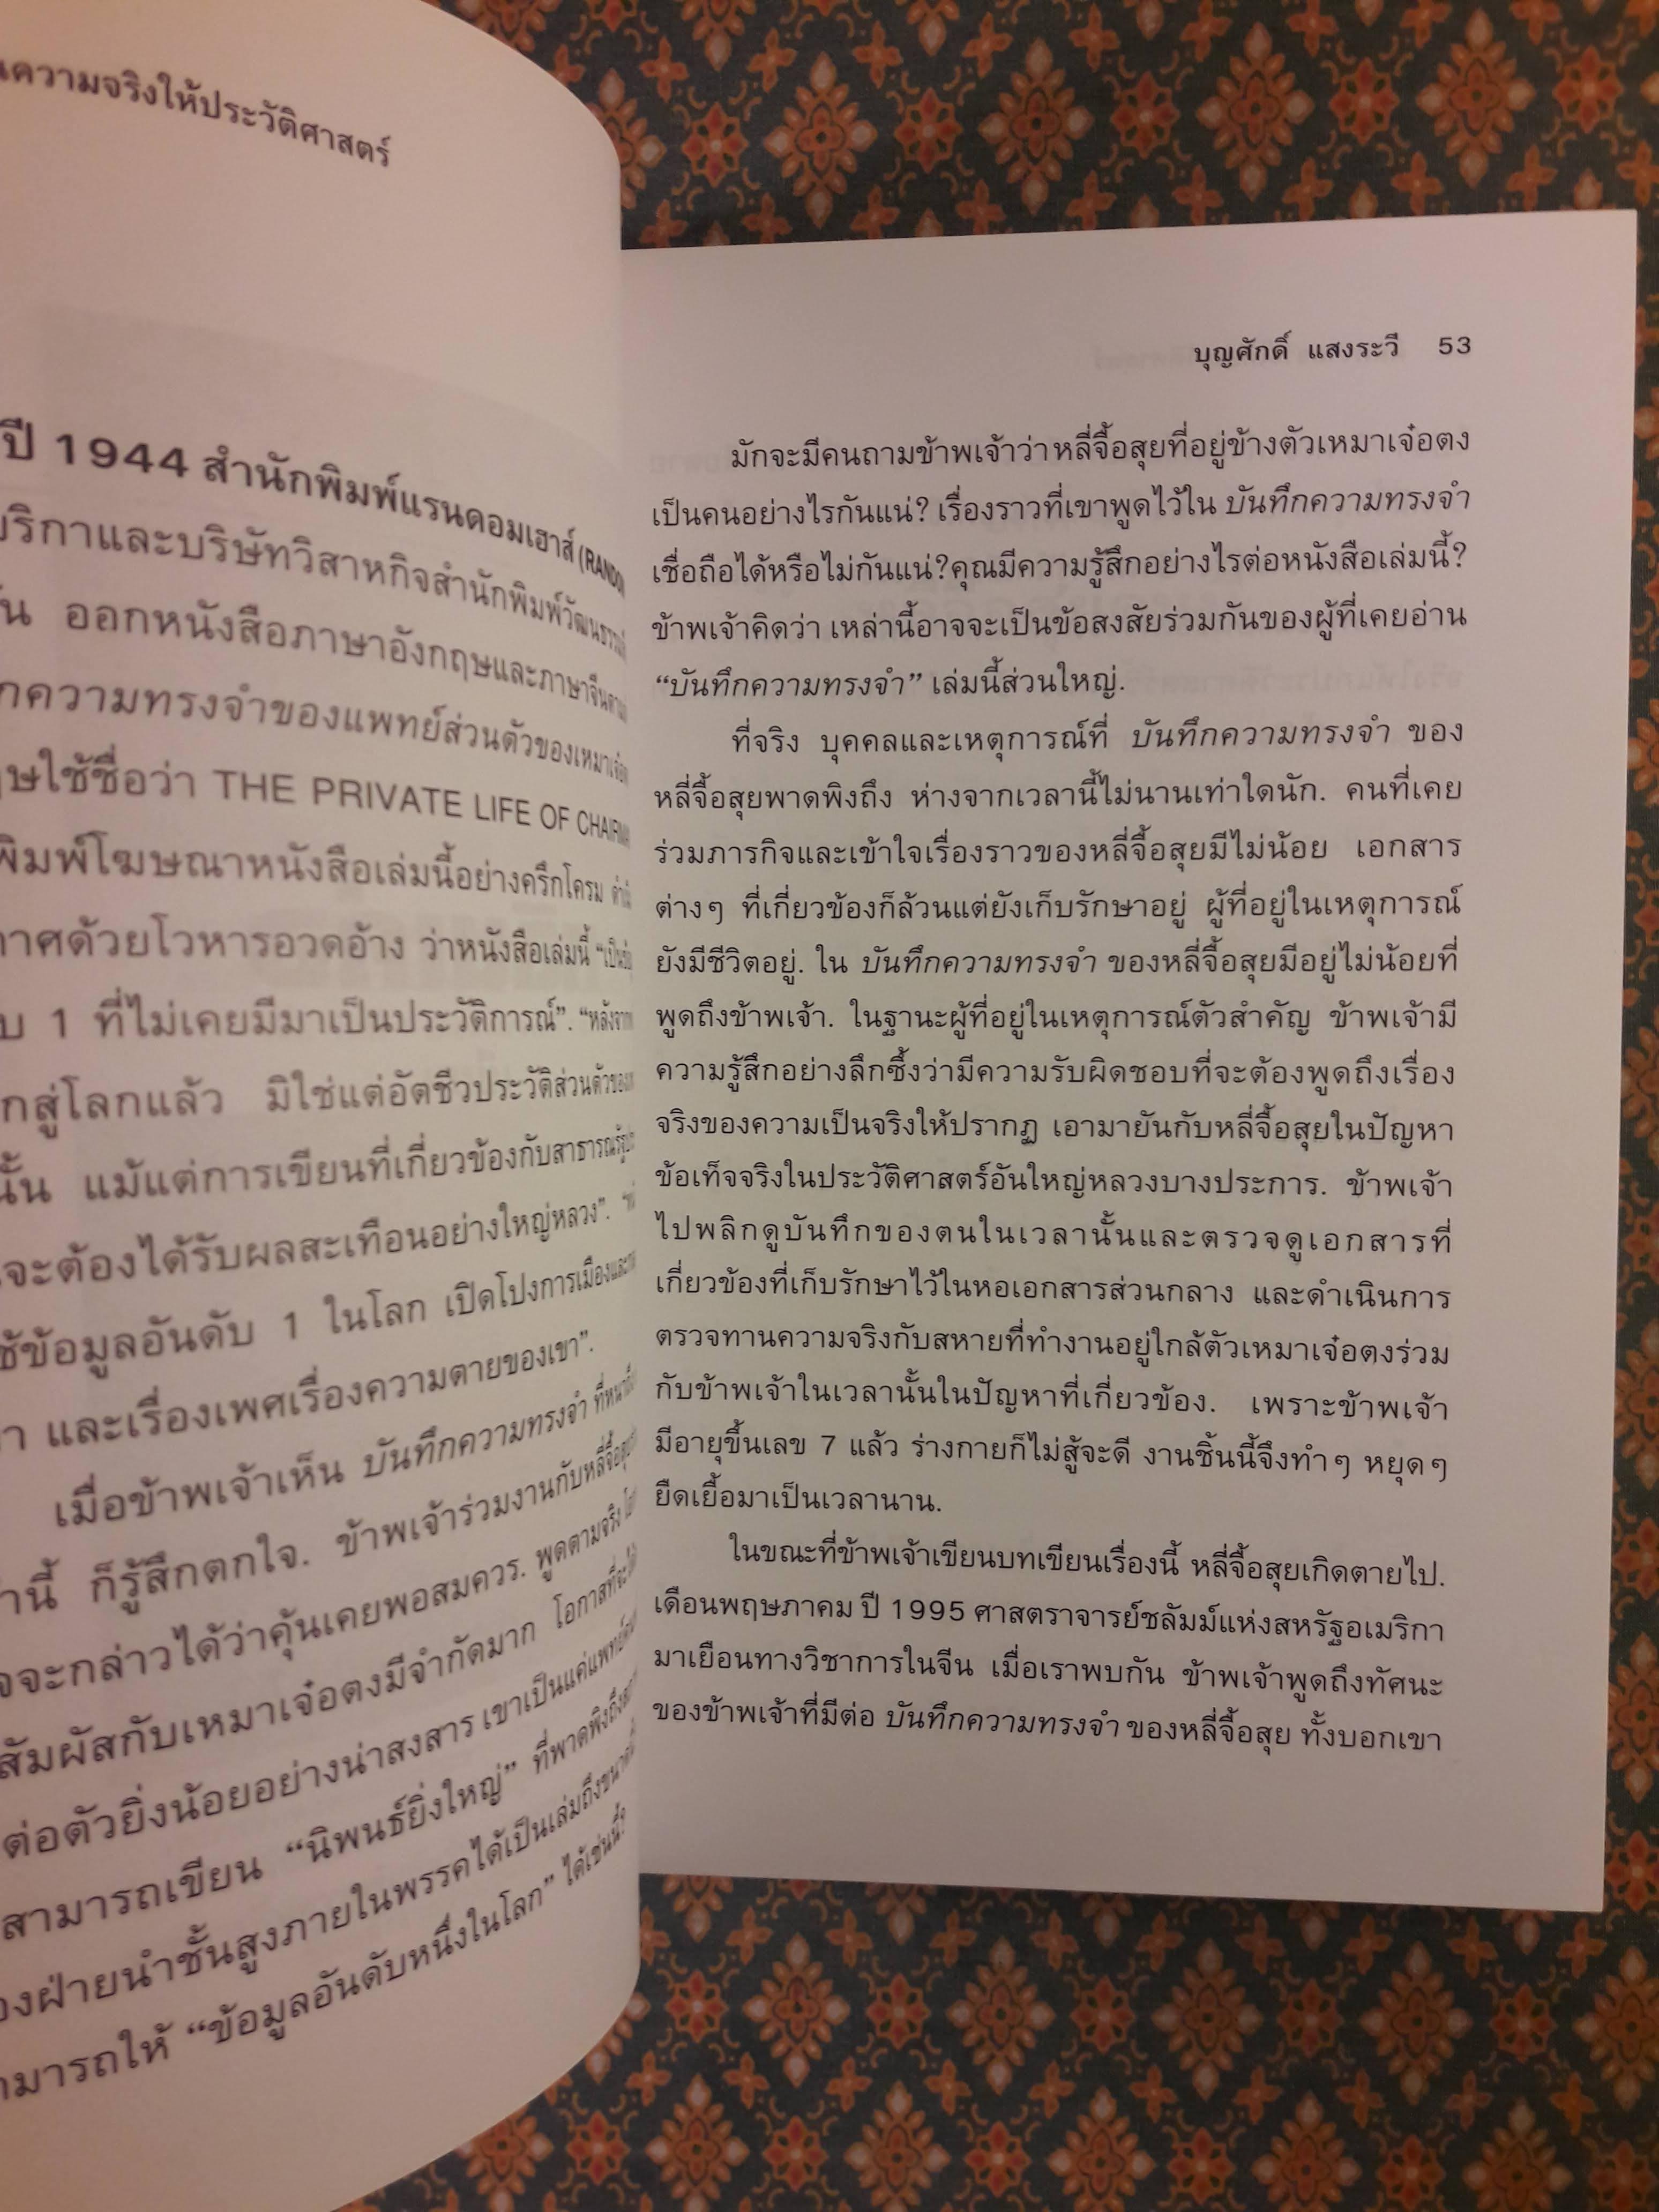 ความจริงให้ประวัติศาสตร์
ปี 1944 สำนักพิมพ์แรนดอมเฮาส์ (RANDO
ริกาและบริษัทวิสาหกิจสำนักพิมพ์วัฒนธรรม
ออกหนังสือภาษาอังกฤษและภาษาจีน
กความทรงจำของแพทย์ส่วนตัวของเหมาเจ๋อ
ษใช้ชื่อว่า THE PRIVATE LIFE OF CHAIRMA
พิมพ์โฆษณาหนังสือเล่มนี้อย่างครึกโครม
าศด้วยโวหารอวดอ้าง ว่าหนังสือเล่มนี้ “เป็น
บ 1 ที่ไม่เคยมีมาเป็นประวัติการณ์”. “หลังจาก
กสู่โลกแล้ว มิใช่แต่อัตชีวประวัติส่วนตัวของ
นั้น แม้แต่การเขียนที่เกี่ยวข้องกับสาธารณรัฐ
จะต้องได้รับผลสะเทือนอย่างใหญ่หลวง”.
ช้ข้อมูลอันดับ 1 ในโลก เปิดโปงการเมืองและ
า และเรื่องเพศเรื่องความตายของเขา”.
เมื่อข้าพเจ้าเห็น บันทึกความทรงจำ ที่หนา
านี้ ก็รู้สึกตกใจ. ข้าพเจ้าร่วมงานกับหลี่จื้อสุย
จจะกล่าวได้ว่าคุ้นเคยพอสมควร. พูดตามจริง
สัมผัสกับเหมาเจ๋อตงมีจำกัดมาก โอกาสที่จะ
ต่อตัวยิ่งน้อยอย่างน่าสงสาร เขาเป็นแค่แพทย์
สามารถเขียน “นิพนธ์ยิ่งใหญ่” ที่พาดพิงถึง
องฝ่ายนำชั้นสูงภายในพรรคได้เป็นเล่มถึงขนาด
ามารถให้ “ข้อมูลอันดับหนึ่งในโลก” ได้เช่นนี้?
บุญศักดิ์ แสงระวี 53
มักจะมีคนถามข้าพเจ้าว่าหลี่จื้อสุยที่อยู่ข้างตัวเหมาเจ๋อตง
เป็นคนอย่างไรกันแน่? เรื่องราวที่เขาพูดไว้ใน บันทึกความทรงจำ
เชื่อถือได้หรือไม่กันแน่?คุณมีความรู้สึกอย่างไรต่อหนังสือเล่มนี้?
ข้าพเจ้าคิดว่า เหล่านี้อาจจะเป็นข้อสงสัยร่วมกันของผู้ที่เคยอ่าน
“บันทึกความทรงจำ” เล่มนี้ส่วนใหญ่.
ที่จริง บุคคลและเหตุการณ์ที่ บันทึกความทรงจำ ของ
หลี่จื้อสุยพาดพิงถึง ห่างจากเวลานี้ไม่นานเท่าใดนัก. คนที่เคย
ร่วมภารกิจและเข้าใจเรื่องราวของหลี่จื้อสุยมีไม่น้อย เอกสาร
ต่างๆ ที่เกี่ยวข้องก็ล้วนแต่ยังเก็บรักษาอยู่ ผู้ที่อยู่ในเหตุการณ์
ยังมีชีวิตอยู่. ใน บันทึกความทรงจำ ของหลี่จื้อสุยมีอยู่ไม่น้อยที่
พูดถึงข้าพเจ้า. ในฐานะผู้ที่อยู่ในเหตุการณ์ตัวสำคัญ ข้าพเจ้ามี
ความรู้สึกอย่างลึกซึ้งว่ามีความรับผิดชอบที่จะต้องพูดถึงเรื่อง
จริงของความเป็นจริงให้ปรากฏ เอามายันกับหลี่จื้อสุยในปัญหา
ข้อเท็จจริงในประวัติศาสตร์อันใหญ่หลวงบางประการ. ข้าพเจ้า
ไปพลิกดูบันทึกของตนในเวลานั้นและตรวจดูเอกสารที่
เกี่ยวข้องที่เก็บรักษาไว้ในหอเอกสารส่วนกลาง และดำเนินการ
ตรวจทานความจริงกับสหายที่ทำงานอยู่ใกล้ตัวเหมาเจ๋อตงร่วม
กับข้าพเจ้าในเวลานั้นในปัญหาที่เกี่ยวข้อง. เพราะข้าพเจ้า
มีอายุขึ้นเลข 7 แล้ว ร่างกายก็ไม่สู้จะดี งานชิ้นนี้จึงทำๆ หยุดๆ
ยืดเยื้อมาเป็นเวลานาน.
ในขณะที่ข้าพเจ้าเขียนบทเขียนเรื่องนี้ หลี่จื้อสุยเกิดตายไป.
เดือนพฤษภาคม ปี 1995 ศาสตราจารย์ชลัมม์แห่งสหรัฐอเมริกา
มาเยือนทางวิชาการในจีน เมื่อเราพบกัน ข้าพเจ้าพูดถึงทัศนะ
ของข้าพเจ้าที่มีต่อ บันทึกความทรงจำ ของหลี่จื้อสุย ทั้งบอกเขา